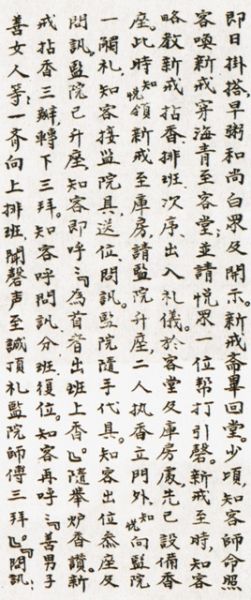 即日掛搭。早粥和尚白眾及開示新戒。齋畢回堂少頃，知客師命照
客喚新戒穿海青至客堂；並請悅眾一位幫打引磬。新戒至時，知客
略教新戒拈香、排班、次序、出入礼儀。於客堂及庫房處先已設備香
座。此時知悅領新戒至庫房，請監院升座，二人执香立門外，知悅向監院
一觸礼，知客接監院具，送位，問訊。監院隨手代具。知客出位叅座及
問訊。監院已升座，知客即呼：『為首者出班上香。』隨舉炉香讚。新
戒拈香三瓣，轉下三拜。知客呼問訊分班復位。知客再呼：『善男子
善女人等；一齊向上排班，聞磬声至誠頂礼監院師傅三拜。』『問訊；